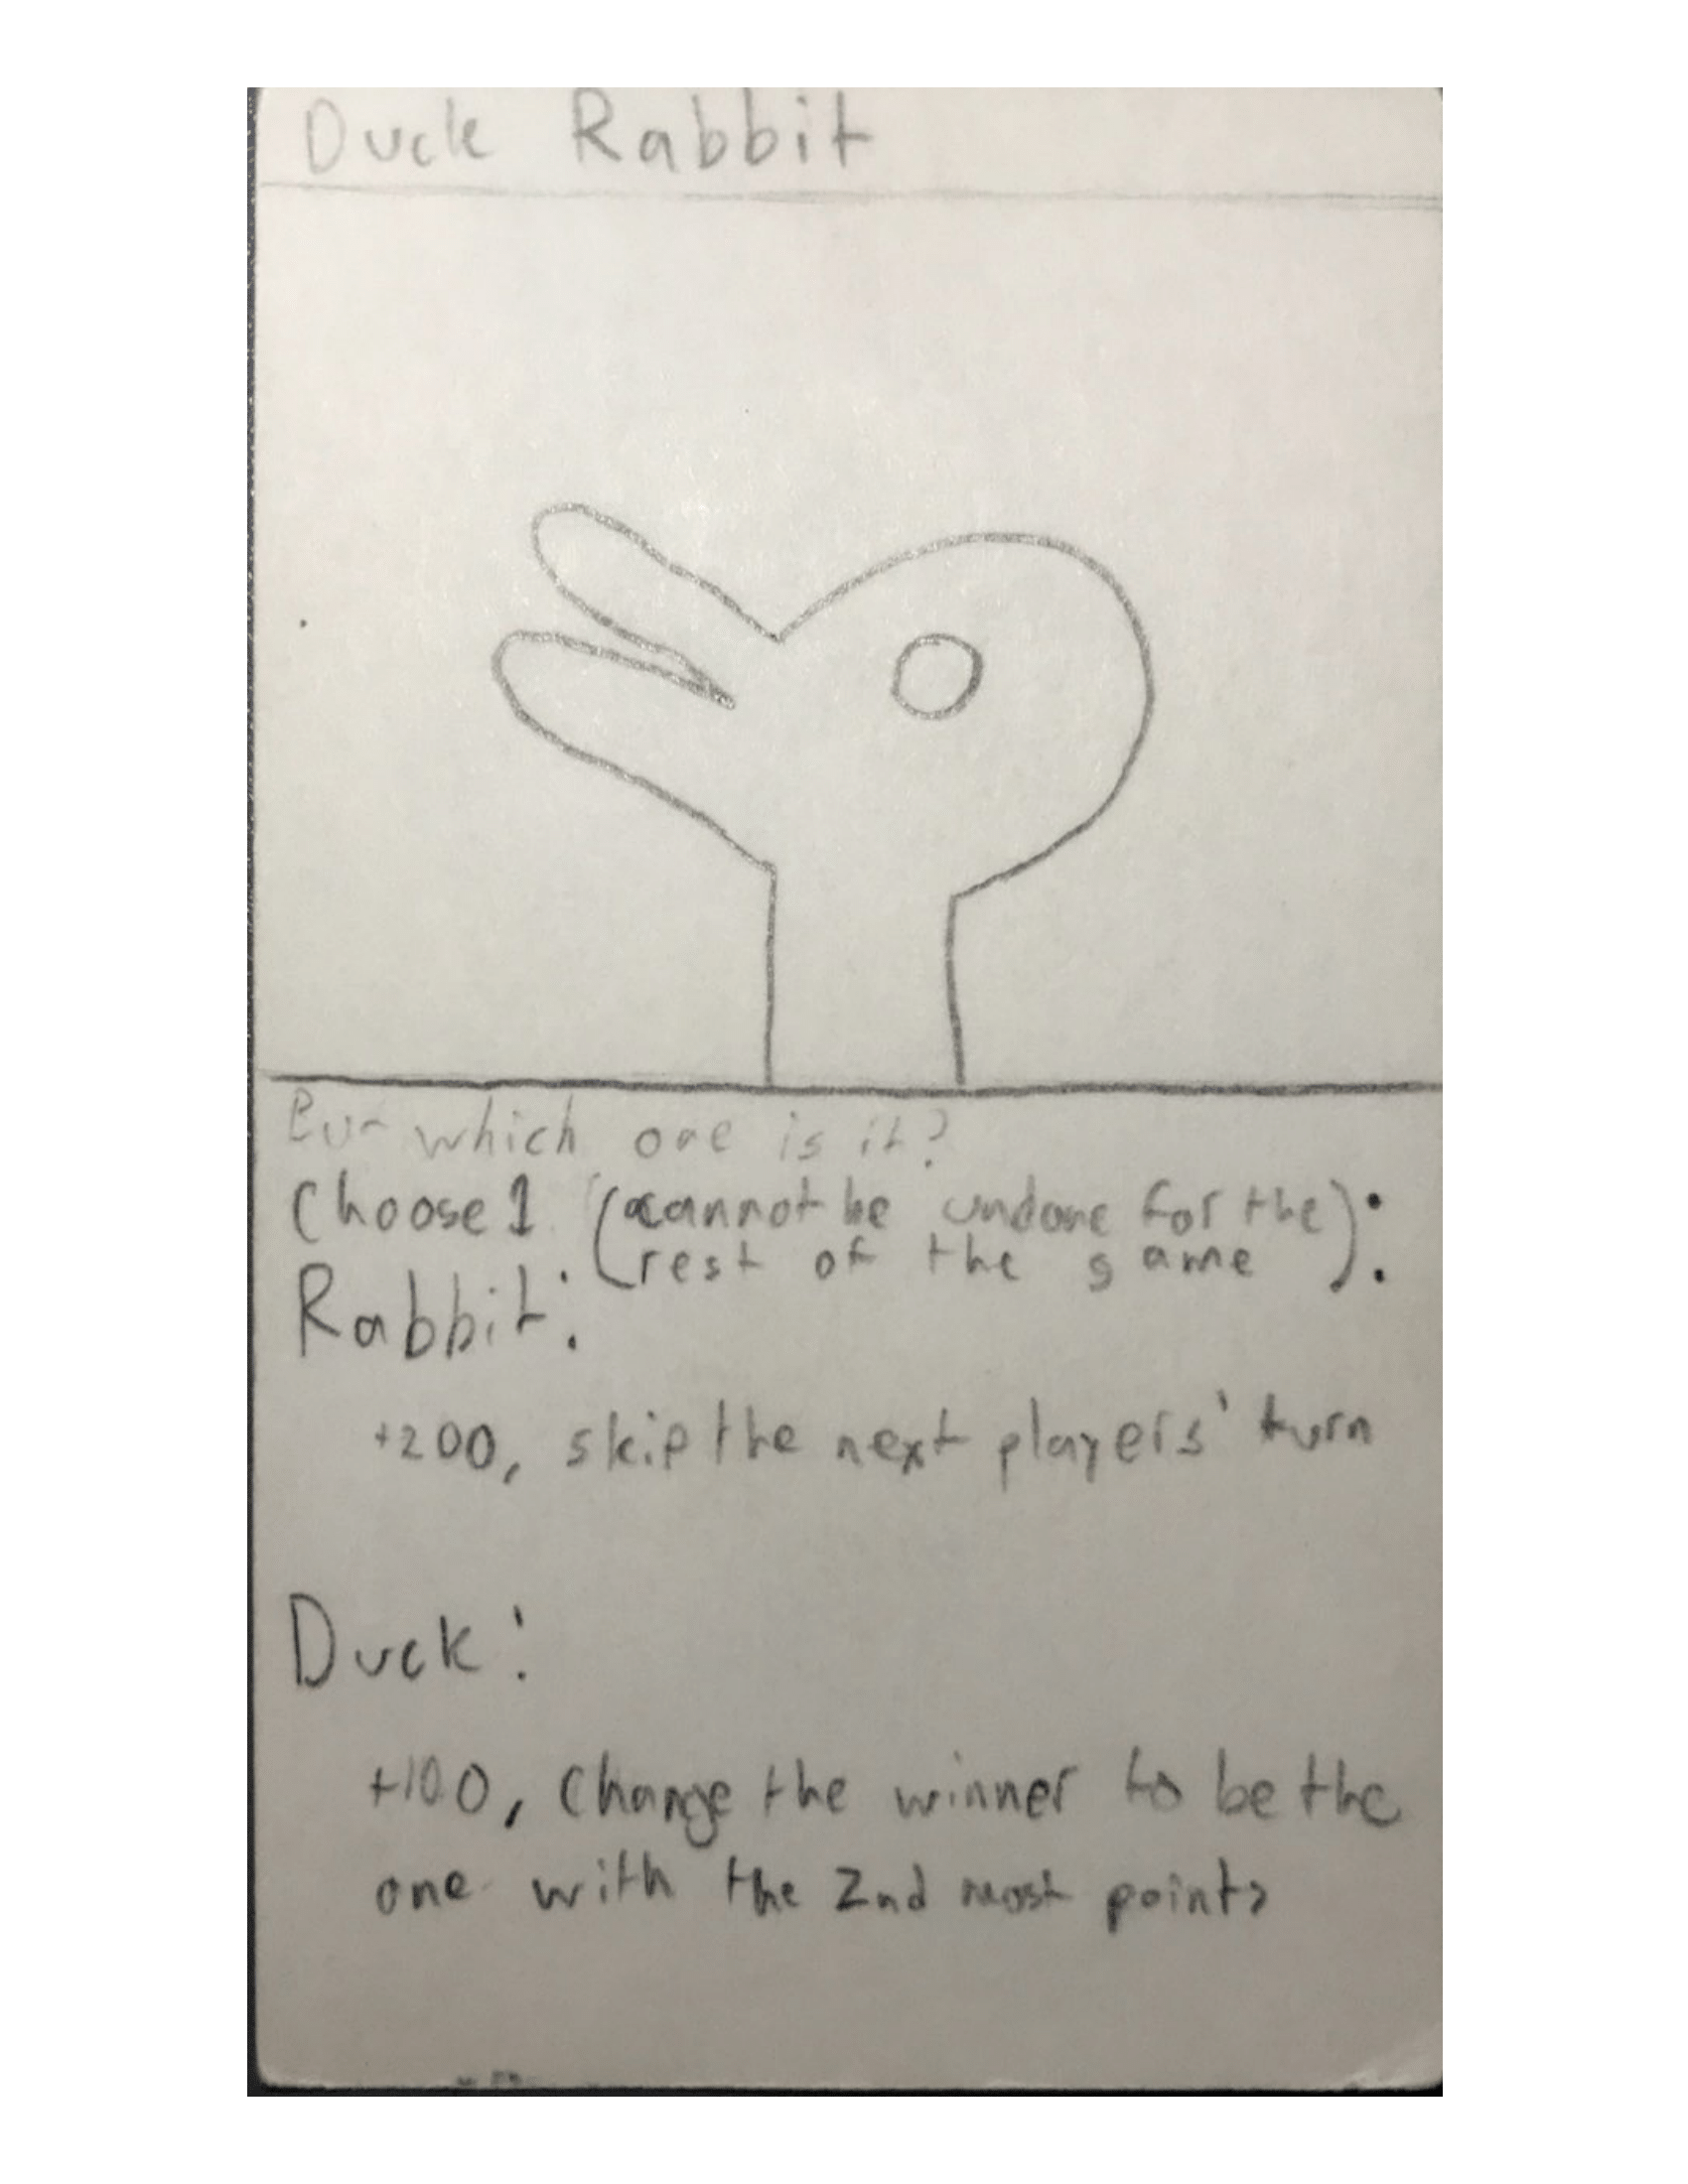 Duck Rabbit
But which one is it?
Choose 1 (cannot be undone for the
rest of the game):
Rabbit:
+200, skip the next players' turn
Duck:
+100, change the winner to be the
one with the 2nd most points